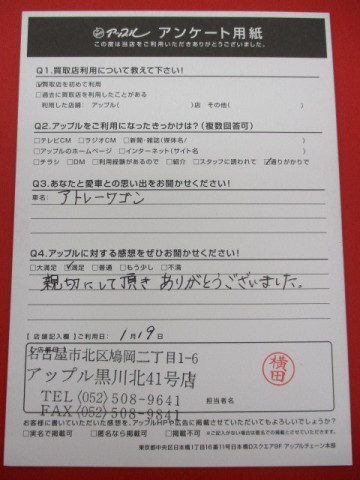 アップル アンケート用紙
この度は当店をご利用いただきありがとうございました。
Q1.買取店利用について教えて下さい!
☑買取店を初めて利用
□過去に買取店を利用したことがある
利用した店舗: アップル( )店 その他( )
Q2.アップルをご利用になったきっかけは?(複数回答可)
□テレビCM □ラジオCM □新聞・雑誌(媒体名/ )
□アップルのホームページ □インターネット(サイト名 )
□チラシ □DM □利用経験があるので □紹介 □スタッフに誘われて ☑通りがかりで
Q3.あなたと愛車との思い出をお聞かせください!
車名: アトレーワゴン
Q4.アップルに対する感想をぜひお聞かせください!
□大満足 ☑満足 □普通 □もう少し □不満
親切にして頂きありがとうございました。
【店舗記入欄】ご利用日: 1月19日
名古屋市北区鳩岡二丁目1-6
アップル黒川北41号店
TEL〈052〉508-9641
FAX〈052〉508-9841
担当者名:
横田
お客様に書いていただいた感想を、アップルHPや広告に掲載させていただいてもよろしいでしょうか?
□実名で掲載可 □匿名なら掲載可 掲載不可 ※ご記入がない場合は匿名での掲載とさせて頂きます。
東京都中央区日本橋1丁目16番11号日本橋Dスクエア9F アップルチェーン本部